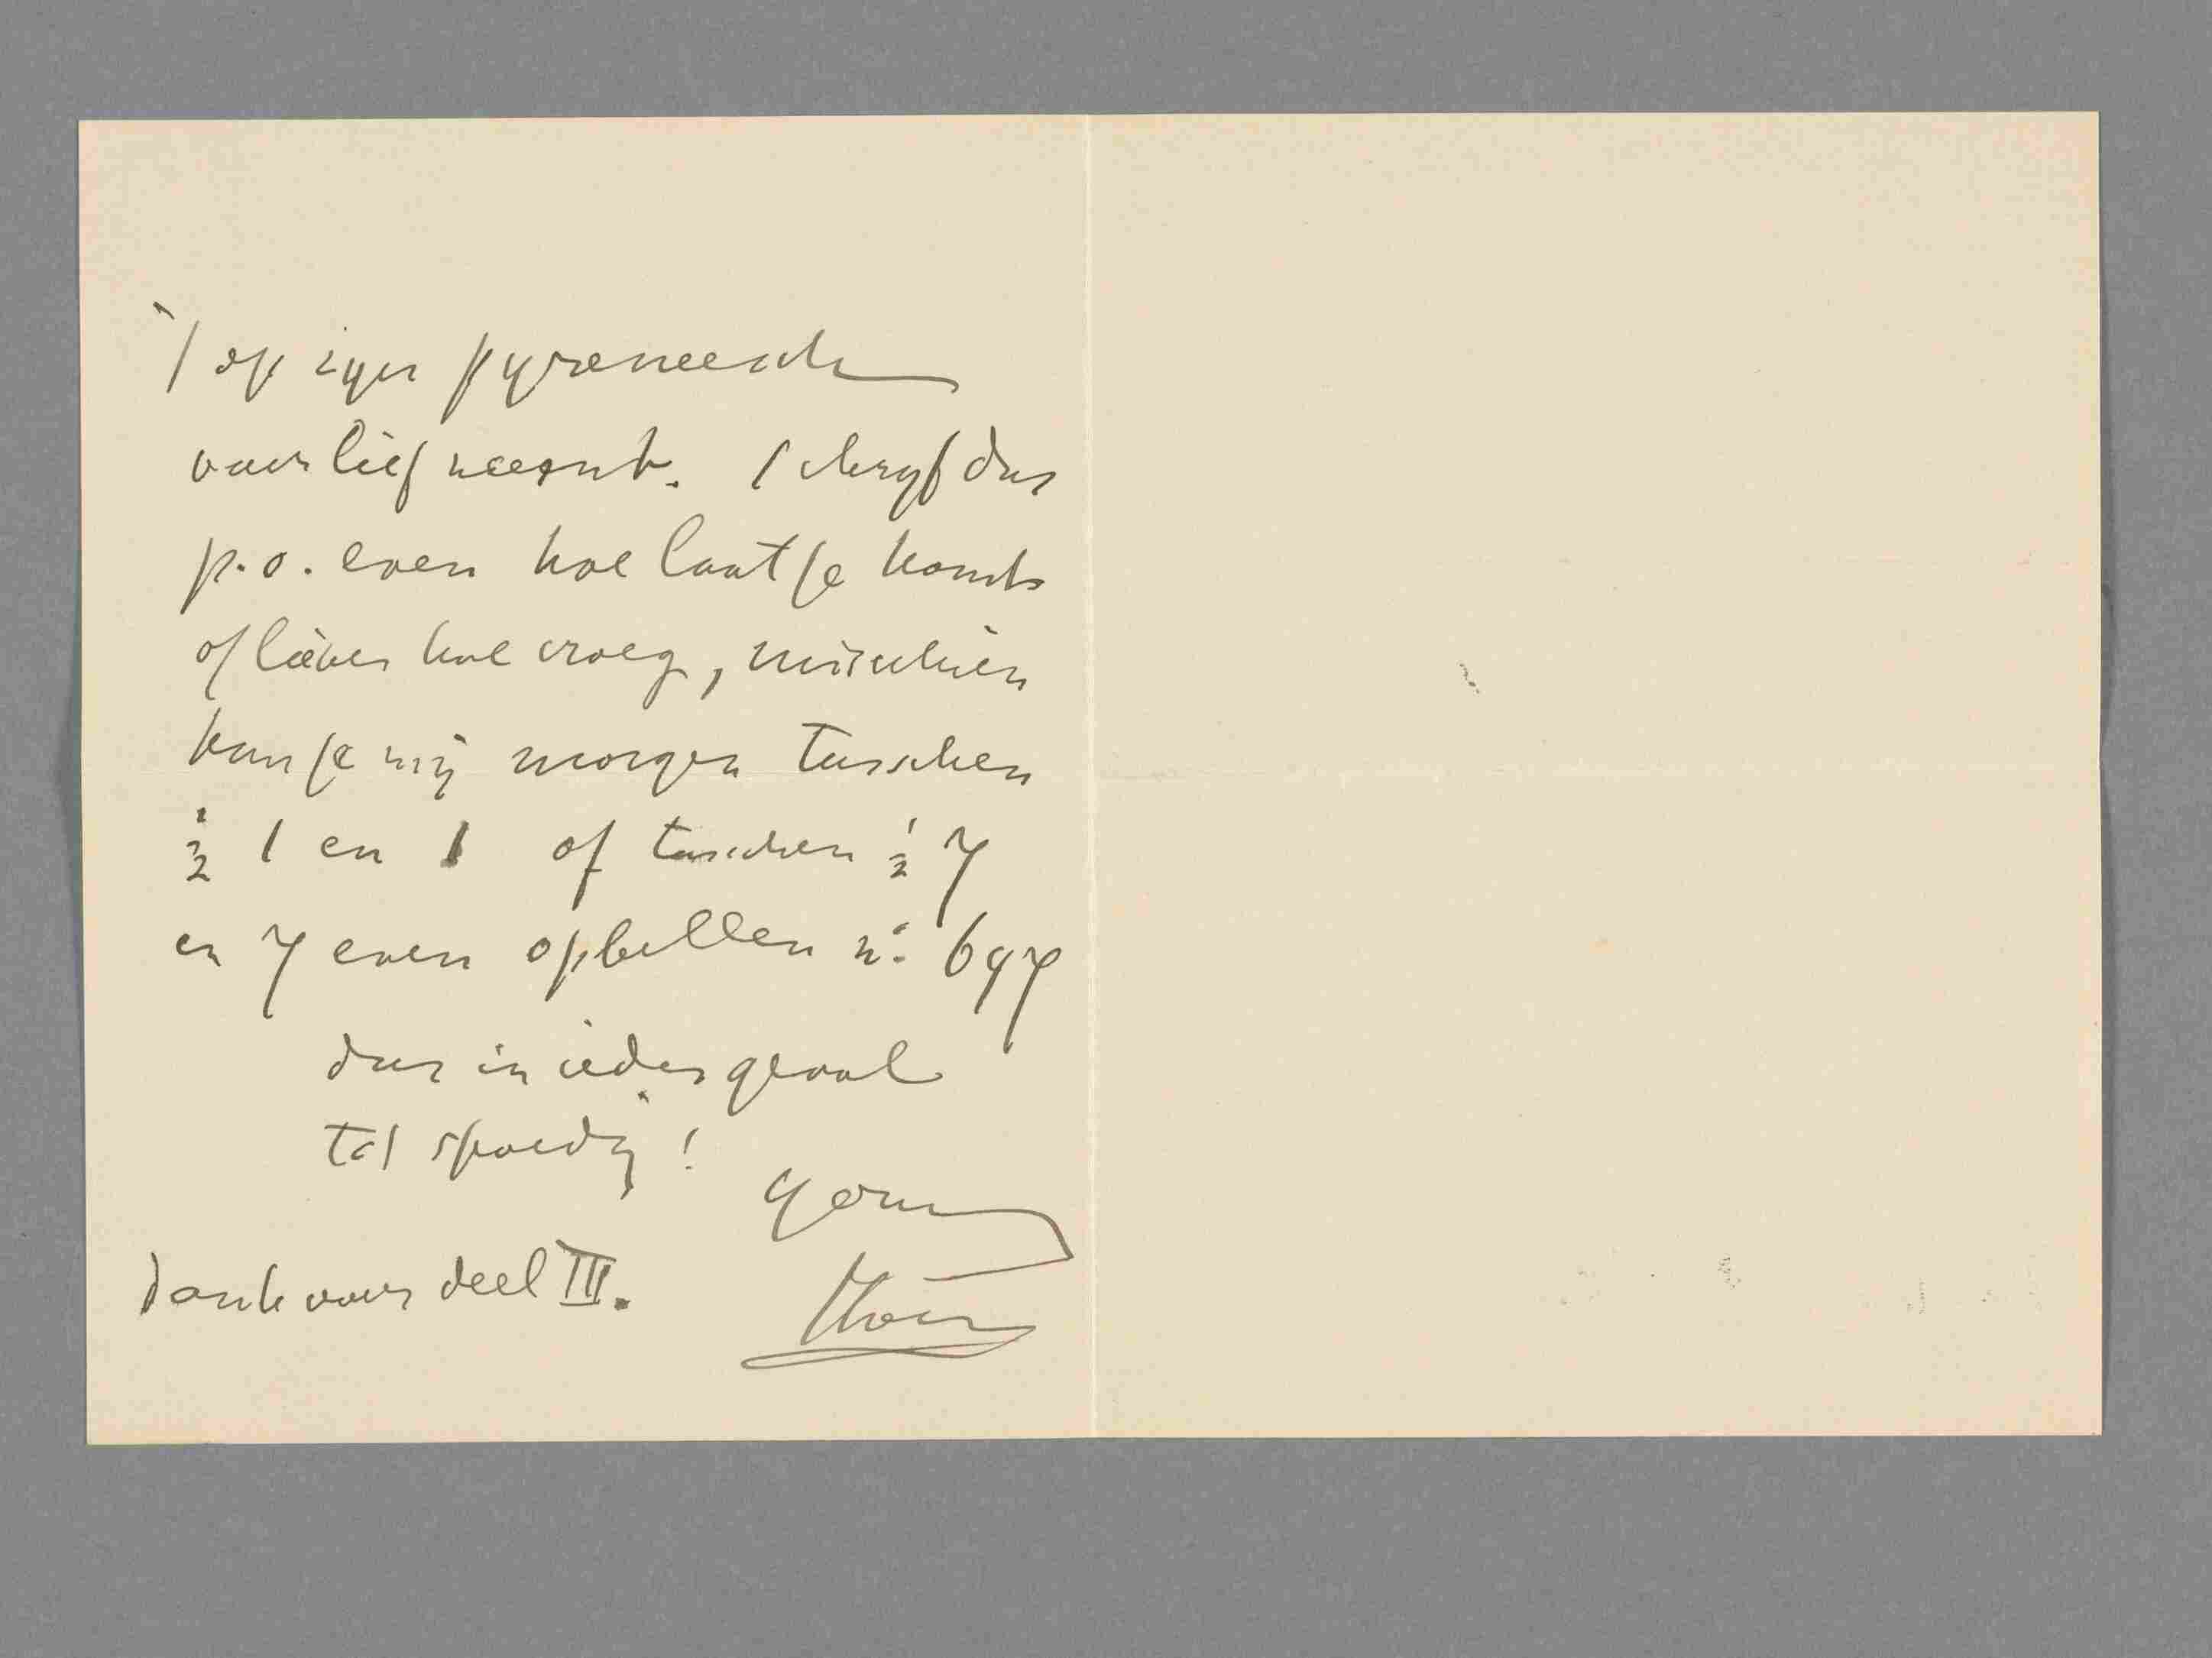 't op zijn pyreneesch
voor lief neemt. Schryf dus
p.o. even hoe laat je komt
of liever hoe vroeg, misschien
kan je mij morgen tusschen
½ 1 en 1 of tusschen ½ 7
en 7 even opbellen no: 697
dus in ieder geval
tot spoedig!
gorm
Dank voor deel III.